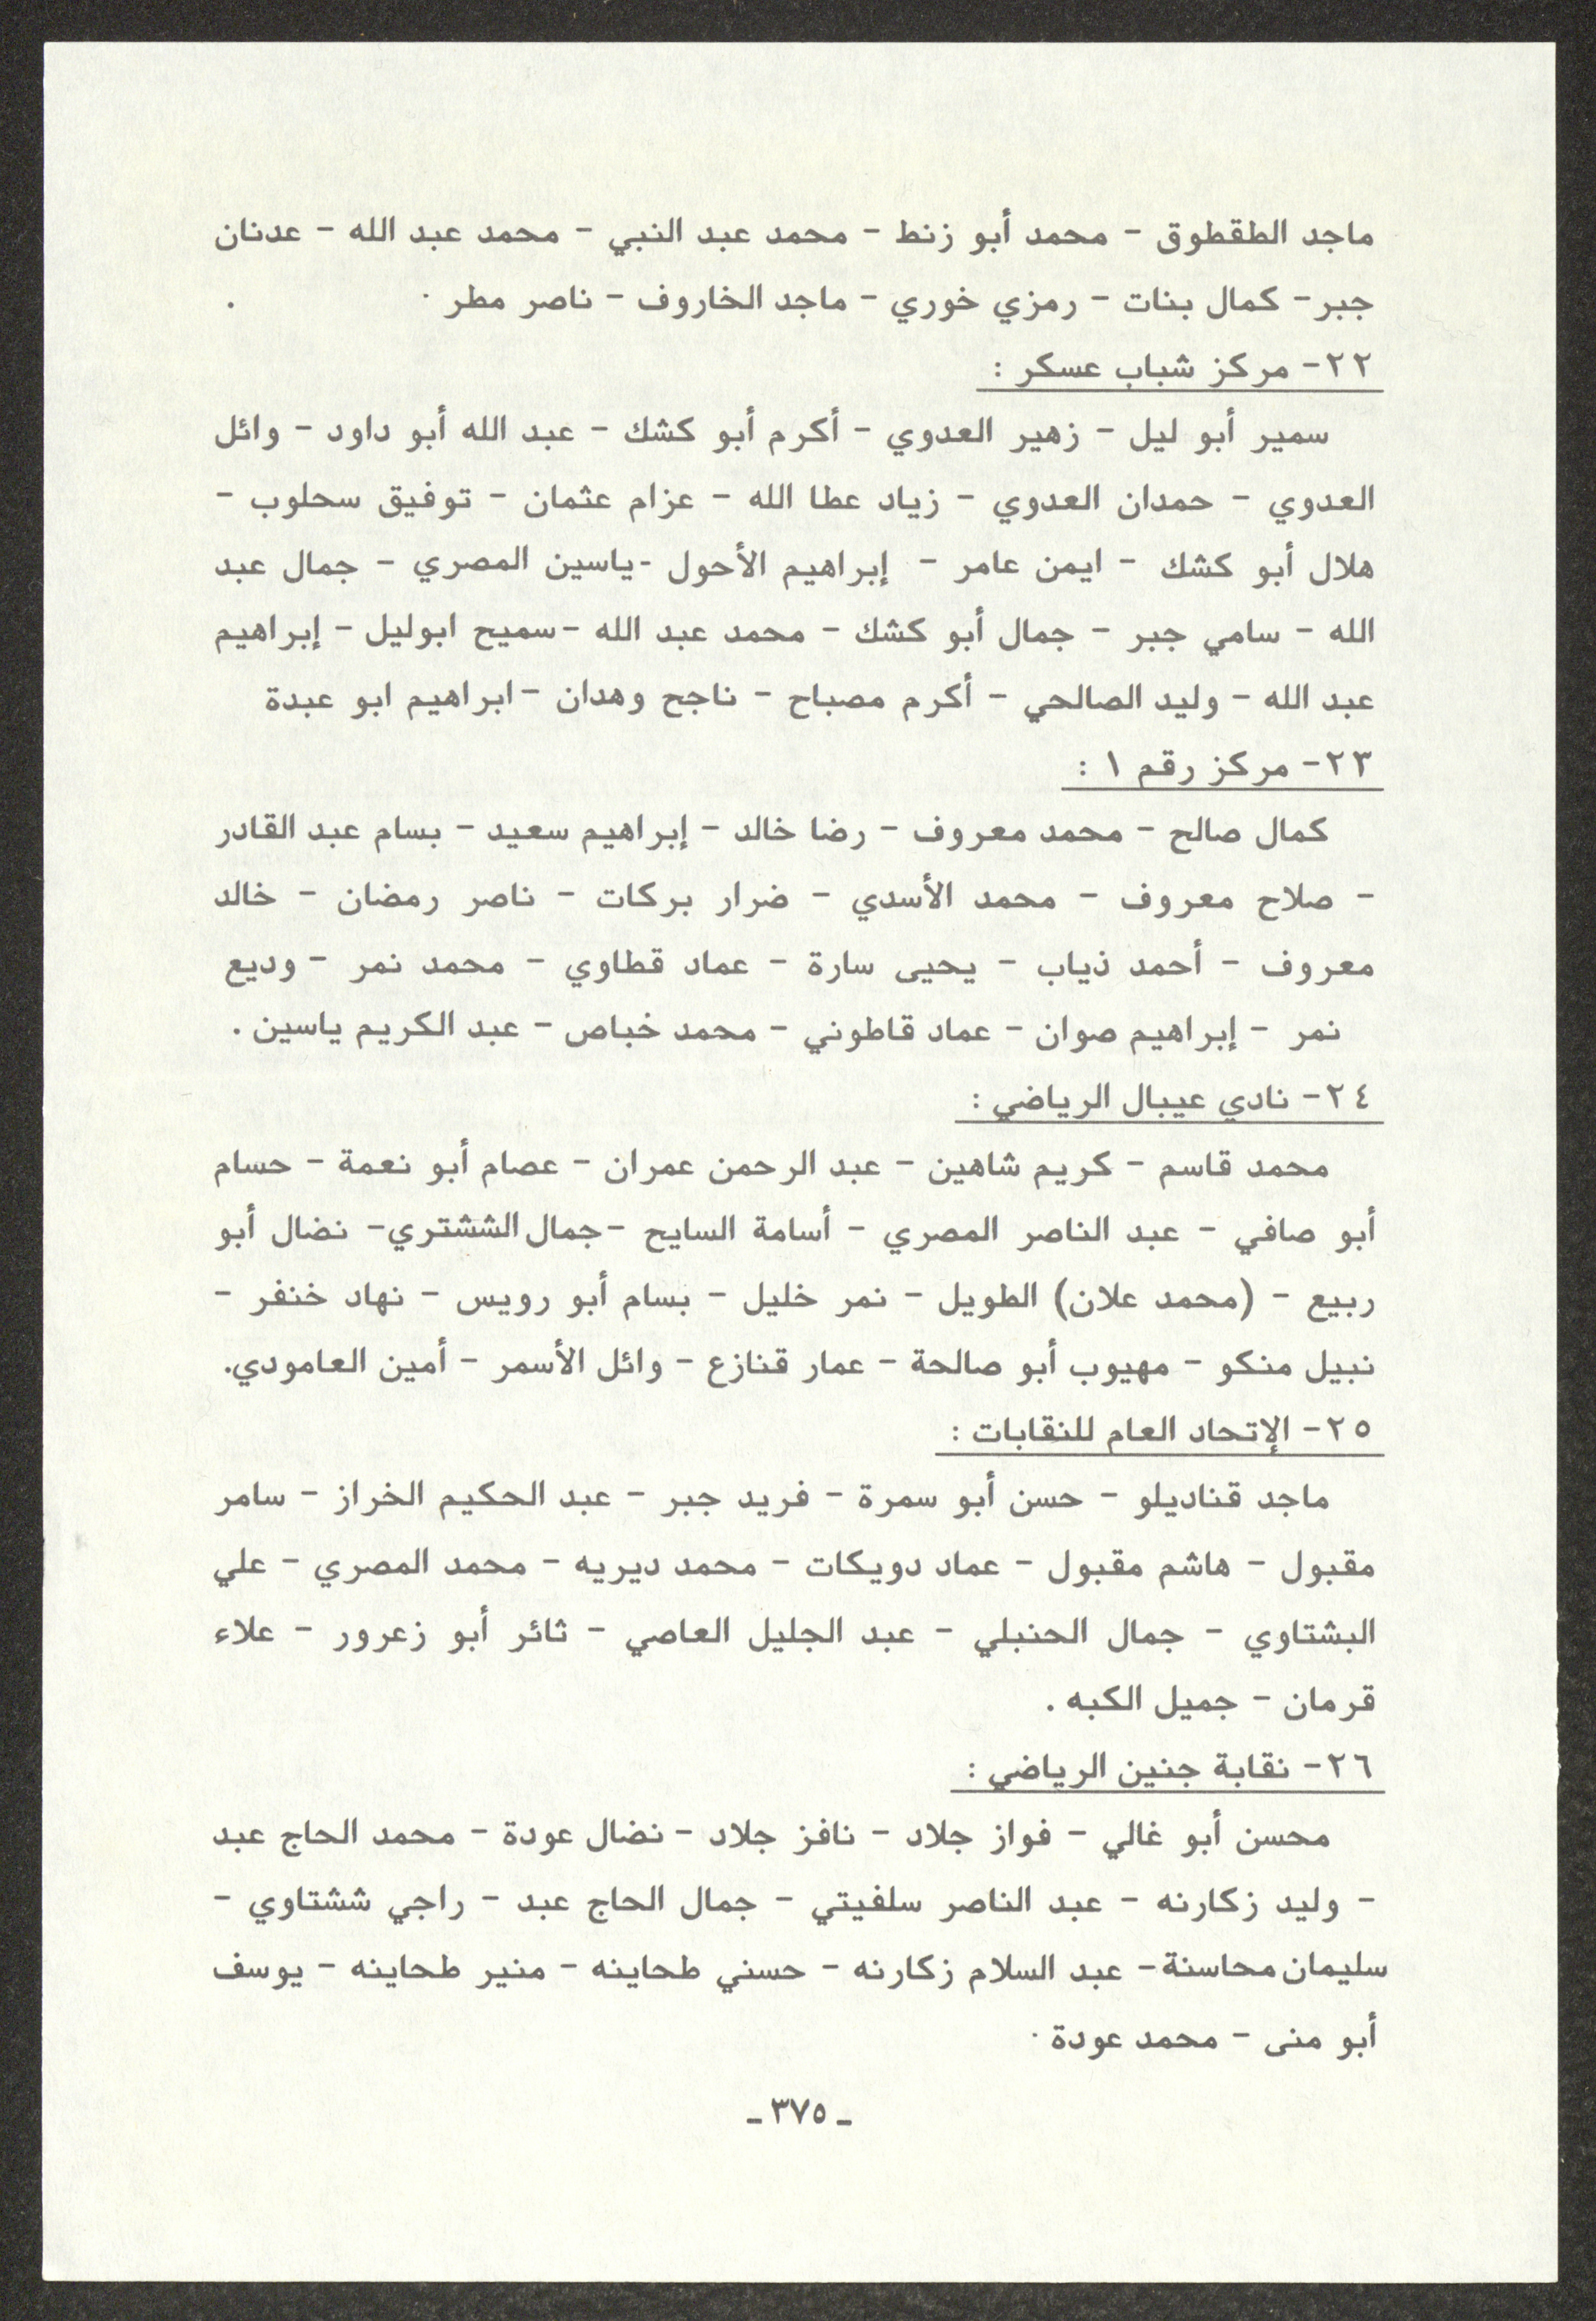 ماجد الطقطوق - محمد أبو زنط - محمد عبد النبي - محمد عبد الله - عدنان
جبر- كمال بنات - رمزي خوري - ماجد الخاروف - ناصر مطر .
٢٢- مركز شباب عسكر :
سمير أبو ليل - زهير العدوي - أكرم أبو كشك - عبد الله أبو داود - وائل
العدوي - حمدان العدوي - زياد عطا الله - عزام عثمان - توفيق سحلوب -
هلال أبو كشك - ايمن عامر - إبراهيم الأحول -ياسين المصري - جمال عبد
الله - سامي جبر - جمال أبو كشك - محمد عبد الله -سميح ابوليل - إبراهيم
عبد الله - وليد الصالحي - أكرم مصباح - ناجح وهدان -ابراهيم ابو عبدة
٢٣- مركز رقم ١ :
كمال صالح - محمد معروف - رضا خالد - إبراهيم سعيد - بسام عبد القادر
- صلاح معروف - محمد الأسدي - ضرار بركات - ناصر رمضان - خالد
معروف - أحمد ذياب - يحيى سارة - عماد قطاوي - محمد نمر - وديع
نمر - إبراهيم صوان - عماد قاطوني - محمد خباص - عبد الكريم ياسين .
٢٤- نادي عيبال الرياضي :
محمد قاسم - كريم شاهين - عبد الرحمن عمران - عصام أبو نعمة - حسام
أبو صافي - عبد الناصر المصري - أسامة السايح -جمال الششتري- نضال أبو
ربيع - (محمد علان) الطويل - نمر خليل - بسام أبو رويس - نهاد خنفر -
نبيل منكو - مهيوب أبو صالحة - عمار قنازع - وائل الأسمر - أمين العامودي.
٢٥- الإتحاد العام للنقابات :
ماجد قناديلو - حسن أبو سمرة - فريد جبر - عبد الحكيم الخراز - سامر
مقبول - هاشم مقبول - عماد دويكات - محمد ديريه - محمد المصري - علي
البشتاوي - جمال الحنبلي - عبد الجليل العاصي - ثائر أبو زعرور - علاء
قرمان - جميل الكبه .
٢٦- نقابة جنين الرياضي :
محسن أبو غالي - فواز جلاد - نافز جلاد - نضال عودة - محمد الحاج عبد
- وليد زكارنه - عبد الناصر سلفيتي - جمال الحاج عبد - راجي ششتاوي -
سليمان محاسنة- عبد السلام زكارنه - حسني طحاينه - منير طحاينه - يوسف
أبو منى - محمد عودة .
ـ ٣٧٥ ـ